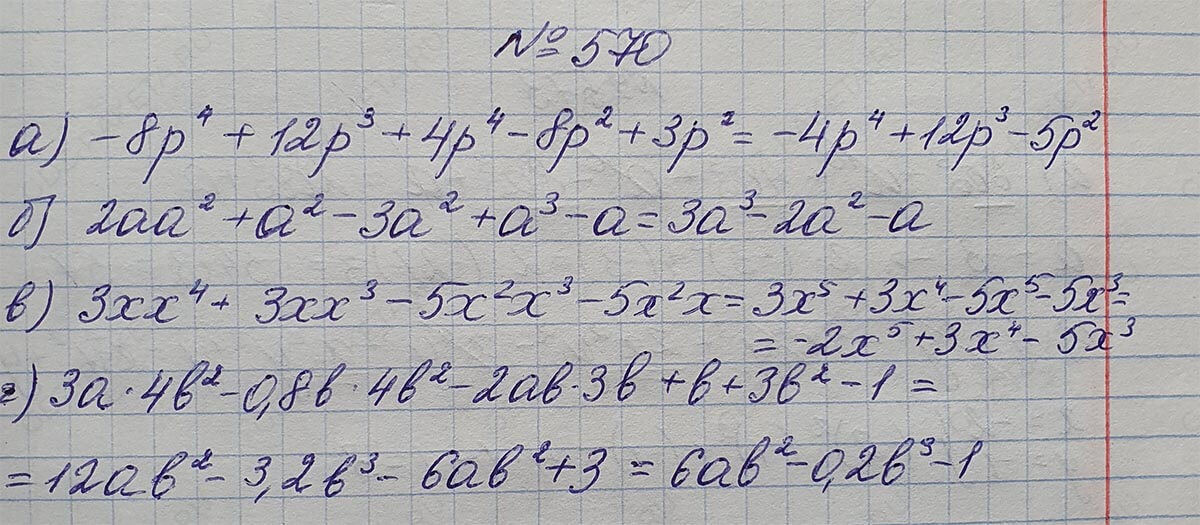 № 570
а) -8p⁴ + 12p³ + 4p⁴ - 8p² + 3p² = -4p⁴ + 12p³ - 5p²
б) 2aa² + a² - 3a² + a³ - a = 3a³ - 2a² - a
в) 3xx⁴ + 3xx³ - 5x²x³ - 5x²x = 3x⁵ + 3x⁴ - 5x⁵ - 5x³ =
= -2x⁵ + 3x⁴ - 5x³
г) 3a · 4b² - 0,8b · 4b² - 2ab · 3b + b + 3b² - 1 =
= 12ab² - 3,2b³ - 6ab² + 3 = 6ab² - 0,2b³ - 1